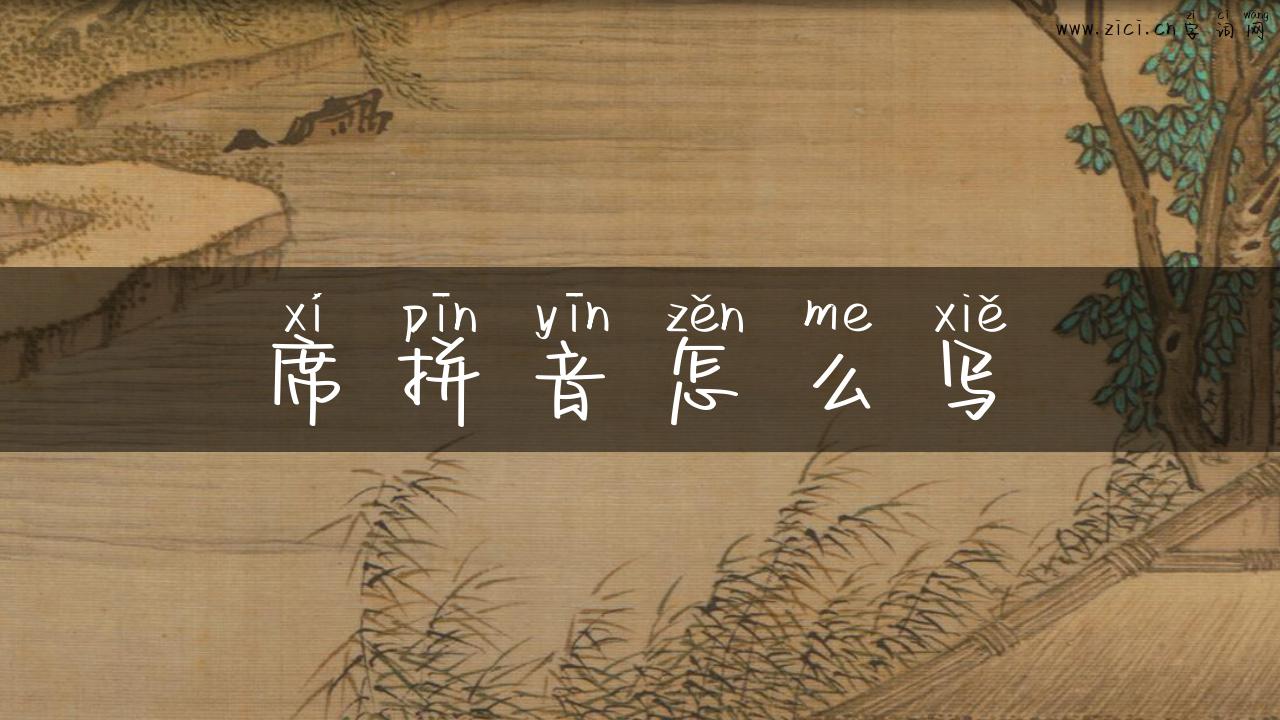 zì cí wǎng
www.zici.cn字词网
xí pīn yīn zěn me xiě
席拼音怎么写